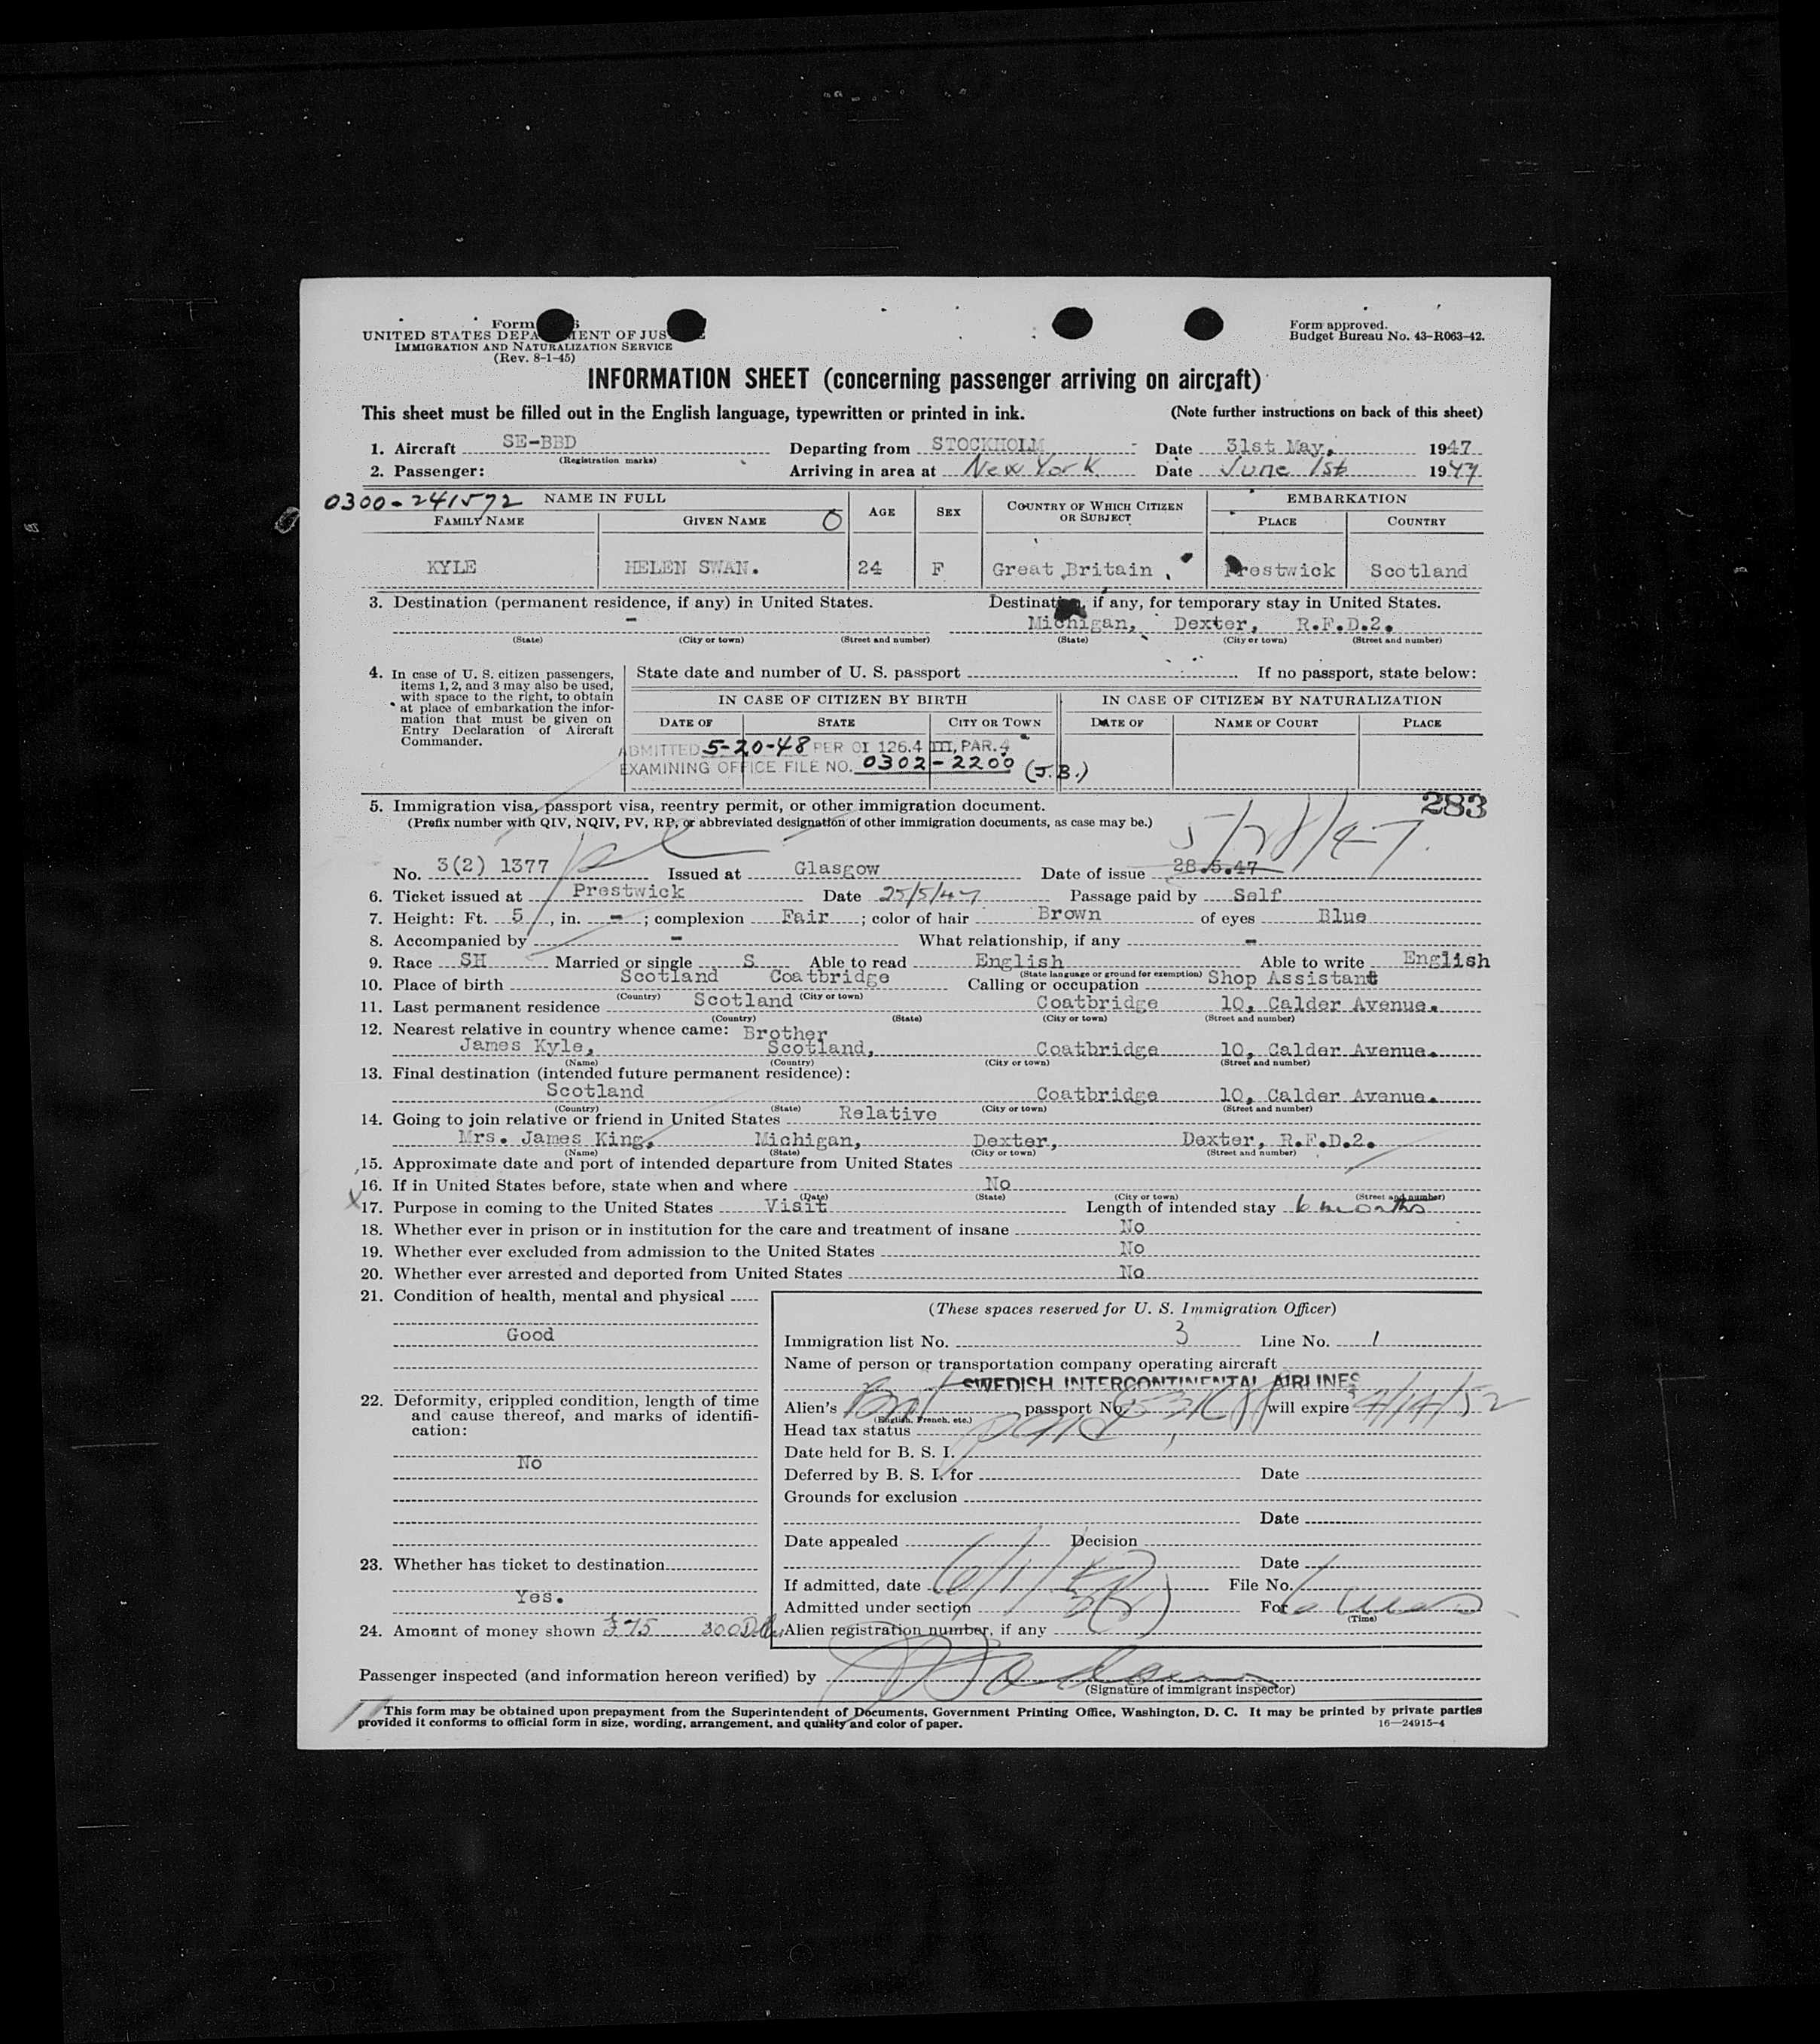 Form
UNITED STATES DEPA MENT OF JUS
IMMIGRATION AND NATURALIZATION SERVICE
(Rev. 8-1-45)
Form approved.
Budget Bureau No. 43-R063-42.
INFORMATION SHEET (concerning passenger arriving on aircraft)
This sheet must be filled out in the English language, typewritten or printed in ink. (Note further instructions on back of this sheet)
1. Aircraft SE-BBD Departing from STOCKHOLM Date 31st May. 1947
(Registration marks)
2. Passenger: Arriving in area at New York Date June 1st 1947
0300-241572 NAME IN FULL AGE SEX COUNTRY OF WHICH CITIZEN OR SUBJECT EMBARKATION
FAMILY NAME GIVEN NAME O PLACE COUNTRY
KYLE HELEN SWAN. 24 F Great Britain Prestwick Scotland
3. Destination (permanent residence, if any) in United States. Destination, if any, for temporary stay in United States.
- Michigan, Dexter, R.F.D.2.
(State) (City or town) (Street and number) (State) (City or town) (Street and number)
4. In case of U. S. citizen passengers, items 1, 2, and 3 may also be used, with space to the right, to obtain at place of embarkation the information that must be given on Entry Declaration of Aircraft Commander.
State date and number of U. S. passport If no passport, state below:
IN CASE OF CITIZEN BY BIRTH IN CASE OF CITIZEN BY NATURALIZATION
DATE OF STATE CITY OR TOWN DATE OF NAME OF COURT PLACE
ADMITTED 5-20-48 PER OI 126.4 III, PAR. 4
EXAMINING OFFICE FILE NO. 0302-2200 (J.B.)
5. Immigration visa, passport visa, reentry permit, or other immigration document. 283
(Prefix number with QIV, NQIV, PV, RP, or abbreviated designation of other immigration documents, as case may be.)
5/28/47
No. 3(2) 1377 Issued at Glasgow Date of issue 28.5.47
6. Ticket issued at Prestwick Date 25/5/47 Passage paid by Self
7. Height: Ft. 5, in. - ; complexion Fair ; color of hair Brown of eyes Blue
8. Accompanied by - What relationship, if any -
9. Race SH Married or single S Able to read English Able to write English
(State language or ground for exemption)
10. Place of birth Scotland Coatbridge Calling or occupation Shop Assistant
(Country) (City or town)
11. Last permanent residence Scotland Coatbridge 10, Calder Avenue.
(Country) (State) (City or town) (Street and number)
12. Nearest relative in country whence came: Brother
James Kyle, Scotland, Coatbridge 10, Calder Avenue.
(Name) (Country) (City or town) (Street and number)
13. Final destination (intended future permanent residence):
Scotland Coatbridge 10, Calder Avenue.
(Country) (State) (City or town) (Street and number)
14. Going to join relative or friend in United States Relative
Mrs. James King, Michigan, Dexter, Dexter, R.F.D.2.
(Name) (State) (City or town) (Street and number)
15. Approximate date and port of intended departure from United States
16. If in United States before, state when and where No
(Date) (State) (City or town) (Street and number)
x 17. Purpose in coming to the United States Visit Length of intended stay 6 months
18. Whether ever in prison or in institution for the care and treatment of insane No
19. Whether ever excluded from admission to the United States No
20. Whether ever arrested and deported from United States No
21. Condition of health, mental and physical
Good
22. Deformity, crippled condition, length of time and cause thereof, and marks of identification:
No
23. Whether has ticket to destination
Yes.
24. Amount of money shown £75
(These spaces reserved for U. S. Immigration Officer)
Immigration list No. 3 Line No. 1
Name of person or transportation company operating aircraft
SWEDISH INTERCONTINENTAL AIRLINES
Alien's Brit passport No. will expire 4/14/52
(English, French, etc.)
Head tax status paid
Date held for B. S. I.
Deferred by B. S. I. for Date
Grounds for exclusion
Date
Date appealed Decision
Date
If admitted, date 6/1/47 File No.
Admitted under section 3(2) For 6 mos
(Time)
Alien registration number, if any
Passenger inspected (and information hereon verified) by
(Signature of immigrant inspector)
This form may be obtained upon prepayment from the Superintendent of Documents, Government Printing Office, Washington, D. C. It may be printed by private parties
provided it conforms to official form in size, wording, arrangement, and quality and color of paper. 16—24915-4